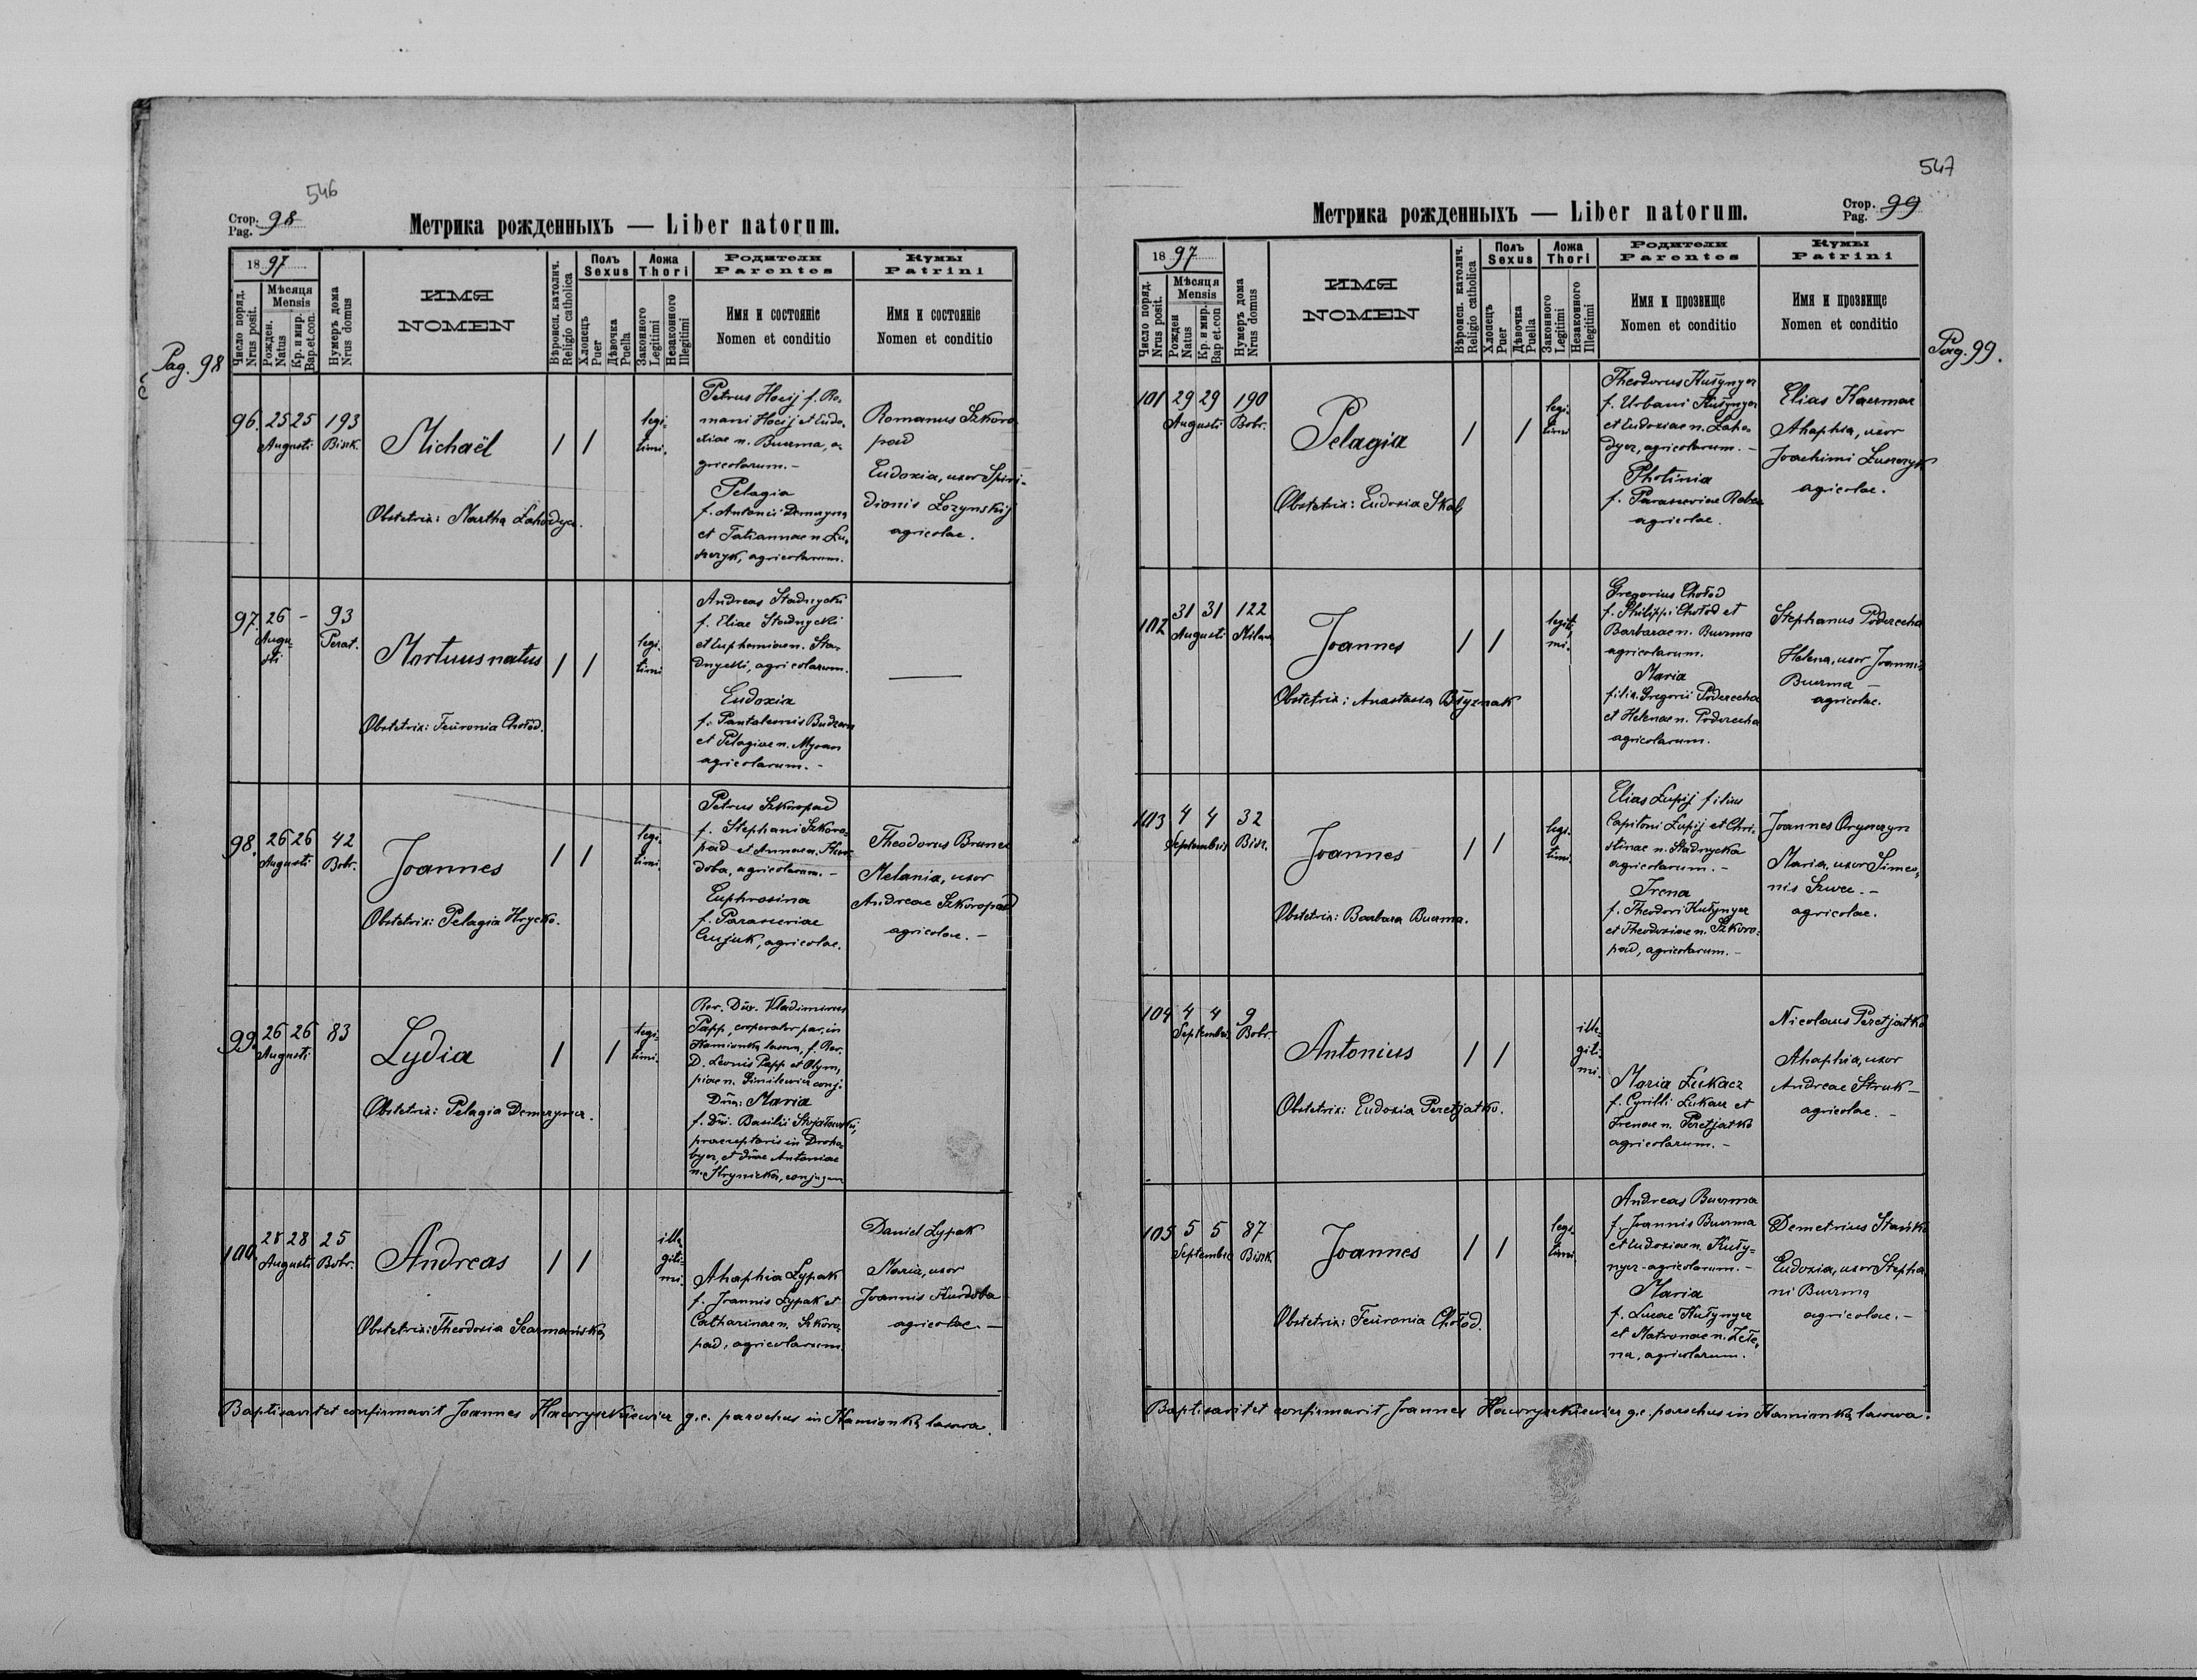 546
Стор. Pag. 98
Метрика рожденныхъ — Liber natorum.
Pag. 98
1897
Число поряд. Nrus posit.
Мѣсяця Mensis
Рожден. Natus
Кр. и мир. Bap.et.con.
Нумеръ дома Nrus domus
ИМЯ
NOMEN
Вѣроисп. католич. Religio catholica
Полъ Sexus
Хлопецъ Puer
Дѣвочка Puella
Ложа Thori
Законного Legitimi
Незаконного Illegitimi
Родители Parentes
Имя и состояніе
Nomen et conditio
Кумы Patrini
Имя и состояніе
Nomen et conditio
96. 25 25 193
Augusti Bisk.
Michaël
/ /
legi-
timi.
Obstetrix: Martha Zahodycz.
Petrus Hocij f. Ro-
mani Hocij et Eudo-
xiae n. Buczma, a-
gricolarum. -
Pelagia
f. Antonii Demczyna
et Tatiannae n. Lu-
szczyk, agricolarum.
Romanus Szkoro
pad
Eudoxia, uxor Spiri-
dionis Lozynskij
agricolae.
97. 26 - 93
Augu-
sti
Perat.
Mortuus natus
/ /
legi-
timi
Obstetrix: Feuronia Chołod.
Andreas Stadnycki
f. Eliae Stadnycki
et Euphemiae n. Sta-
dnycki, agricolarum.
Eudoxia
f. Pantaleonis
et Pelagiae n.
agricolarum. -
98. 26 26 42
Augusti Bobr.
Joannes
/ /
legi-
timi.
Obstetrix: Pelagia Hrycko.
Petrus Szkoropad
f. Stephani Szkoro-
pad et Annae n. Kur-
doba, agricolarum. -
Euphrosina
f. Parasceviae
agricolae.
Theodorus
Melania, uxor
Andreae Szkoropad
agricolae. -
99. 26 26 83
Augusti
Lydia
/ /
legi-
timi.
Obstetrix: Pelagia Demczyna.
Rev. Dnus. Vladimirus
Papp, cooperator par. in
Kamionka lasowa, f. Rev.
D. Leonis Papp et Olym-
piae n. conj.
Dna: Maria
f. Dni. Basilii
praeceptoris in Droho-
bycz, et dnae Antoniae
n. Hrynicka, conjugum
100. 28 28 25
Augusti Bobr.
Andreas
/ /
ille-
giti-
mi.
Obstetrix: Theodosia
Ahaphia Lypak
f. Joannis Lypak et
Catharinae n. Szkoro-
pad, agricolarum.
Daniel Lypak
Maria, uxor
Joannis Kurdoba
agricolae. -
Baptisavit et confirmavit Joannes Haworyszkiewicz g.c. parochus in Kamionka lasowa.
547
Метрика рожденныхъ — Liber natorum.
Стор. Pag. 99
Pag. 99.
1897
Число поряд. Nrus posit.
Мѣсяця Mensis
Рожден Natus
Кр. и мир. Bap et.con
Нумеръ дома Nrus domus
ИМЯ
NOMEN
Вѣроисп. католич. Religio catholica
Полъ Sexus
Хлопецъ Puer
Дѣвочка Puella
Ложа Thori
Законного Legitimi
Незаконного Illegitimi
Родители Parentes
Имя и прозвище
Nomen et conditio
Кумы Patrini
Имя и прозвище
Nomen et conditio
101 29 29 190
Augusti Bobr.
Pelagia
/ /
legi-
timi
Obstetrix: Eudoxia Skab
Theodorus Kušznyer
f. Urbani Kušznyer
et Eudoxiae n. Zaho-
dycz, agricolarum. -
Photinia
f. Parasceviae
agricolae.
Elias Kaczmar
Ahaphia, uxor
Joachimi Luszczyk
agricolae.
102 31 31 122
Augusti
Joannes
/ /
legiti-
mi.
Obstetrix: Anastasia Bšyznak
Gregorius Chołod
f. Philippi Chołod et
Barbarae n. Buczma
agricolarum.
Maria
filia Gregorii Poderecha
et Helenae n. Poderecha
agricolarum.
Stephanus Poderecha
Helena, uxor Joannis
Buczma -
agricolae.
103 4 4 32
Septembris Bisk.
Joannes
/ /
legi-
timi.
Obstetrix: Barbara Buczma.
Elias Lupij filius
Capitoni Lupij et Chri-
stinae n. Stadnycka
agricolarum. -
Irena
f. Theodori Kušznyer
et Theodosiae n. Szkoro-
pad, agricolarum. -
Joannes
Maria, uxor Simeo-
nis Szwec. -
agricolae.
104 4 4 9
Septembris Bobr.
Antonius
/ /
ille-
giti-
mi.
Obstetrix: Eudoxia Peretjatko.
Maria Lukacz
f. Cyrilli Lukacz et
Irenae n. Peretjatko
agricolarum. -
Nicolaus Peretjatko
Ahaphia, uxor
Andreae Struk -
agricolae. -
105 5 5 87
Septembris Bisk.
Joannes
/ /
legi-
timi
Obstetrix: Feuronia Chołod.
Andreas Buczma
f. Joannis Buczma
et Eudoxiae n. Kušz-
nyer - agricolarum. -
Maria
f. Lucae Kušznyer
et Matronae n. Zełe-
na, agricolarum.
Demetrius Stańko
Eudoxia, uxor Stepha-
ni Buczma
agricolae. -
Baptisavit et confirmavit Joannes Haworyszkiewicz g.c. parochus in Kamionka lasowa.